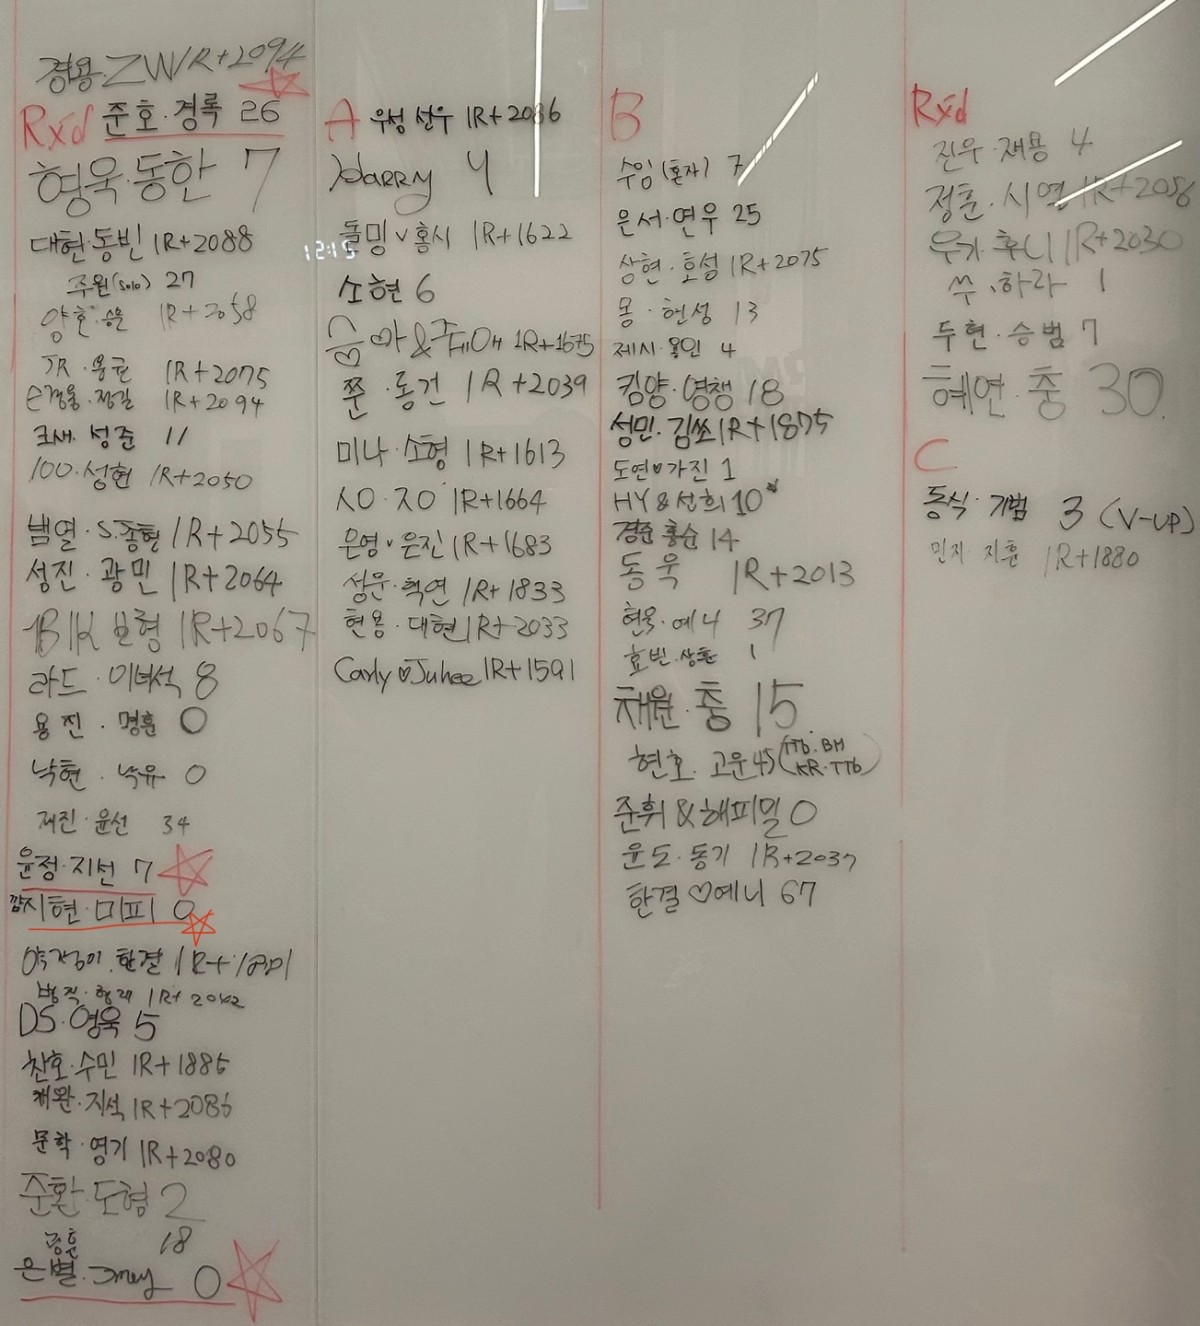 경용·ZW 1R+2094
Rxd 준호·경록 26
형욱·동한 7
대현·동빈 1R+2088
주원(solo) 27
양호·승윤 1R+2058
JR·용권 1R+2075
손경율·정길 1R+2094
크새·성준 11
100·성현 1R+2050
범열·S.종현 1R+2055
성진·광민 1R+2064
1B1K 보형 1R+2067
라드·이녀석 8
용진·명훈 0
낙현·낙유 0
재진·윤선 34
윤정·지선 7
깜지현·미피 0
한결
1R+2042
DS·영욱 5
찬호·수민 1R+1885
채완·지석 1R+2086
문학·영기 1R+2080
준환·도형 2
18
은별· 0
A 우성 선우 1R+2086
Harry 4
돌밍♥홍시 1R+1622
12:15
소현 6
1R+1675
쭌·동건 1R+2039
미나·소형 1R+1613
1R+1664
은영♥은진 1R+1683
성문·혁연 1R+1833
현용·대현 1R+2033
Carly♡Juhee 1R+1591
B
수임(혼자) 7
은서·연우 25
상현·호성 1R+2075
몽·헌성 13
제시·용인 4
킴양·영챙 18
성민·김쏘 1R+1875
도연♥가진 1
HY&선희 10*
경준 홍순 14
동욱 1R+2013
현욱·예나 37
효빈·상훈 1
채원·충 15
현호·고운 45 (TTb·BH
KR·TTb)
준휘&해피밀 0
윤도·동기 1R+2037
한결♡예니 67
Rxd
진우·재용 4
정훈·시연 1R+2056
우가·후니 1R+2030
쑤·하라 1
두현·승범 7
혜연·충 30
C
동식·기범 3 (V-UP)
민지·지훈 1R+1880